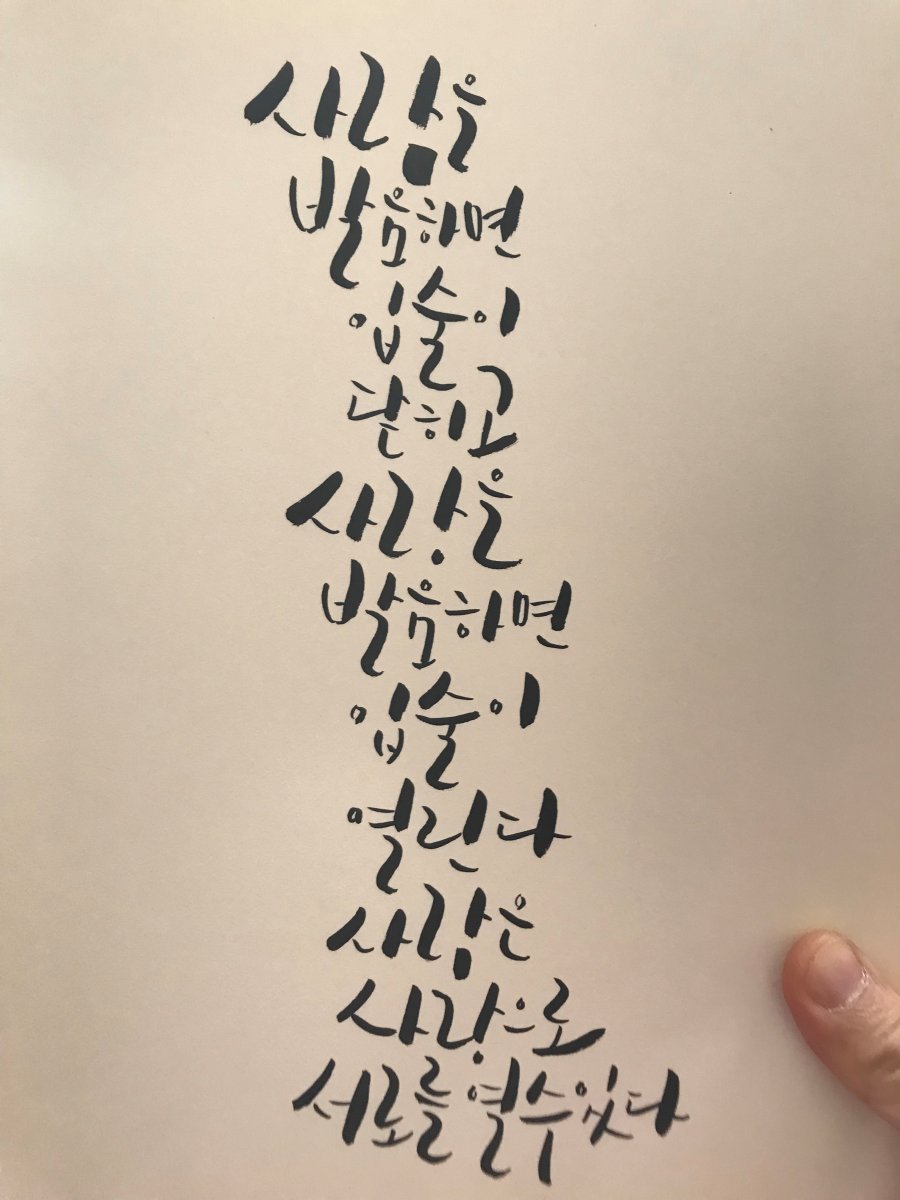 사람을
발음하면
입술이
닫히고
사랑을
발음하면
입술이
열린다
사람은
사랑으로
서로를 열수있다